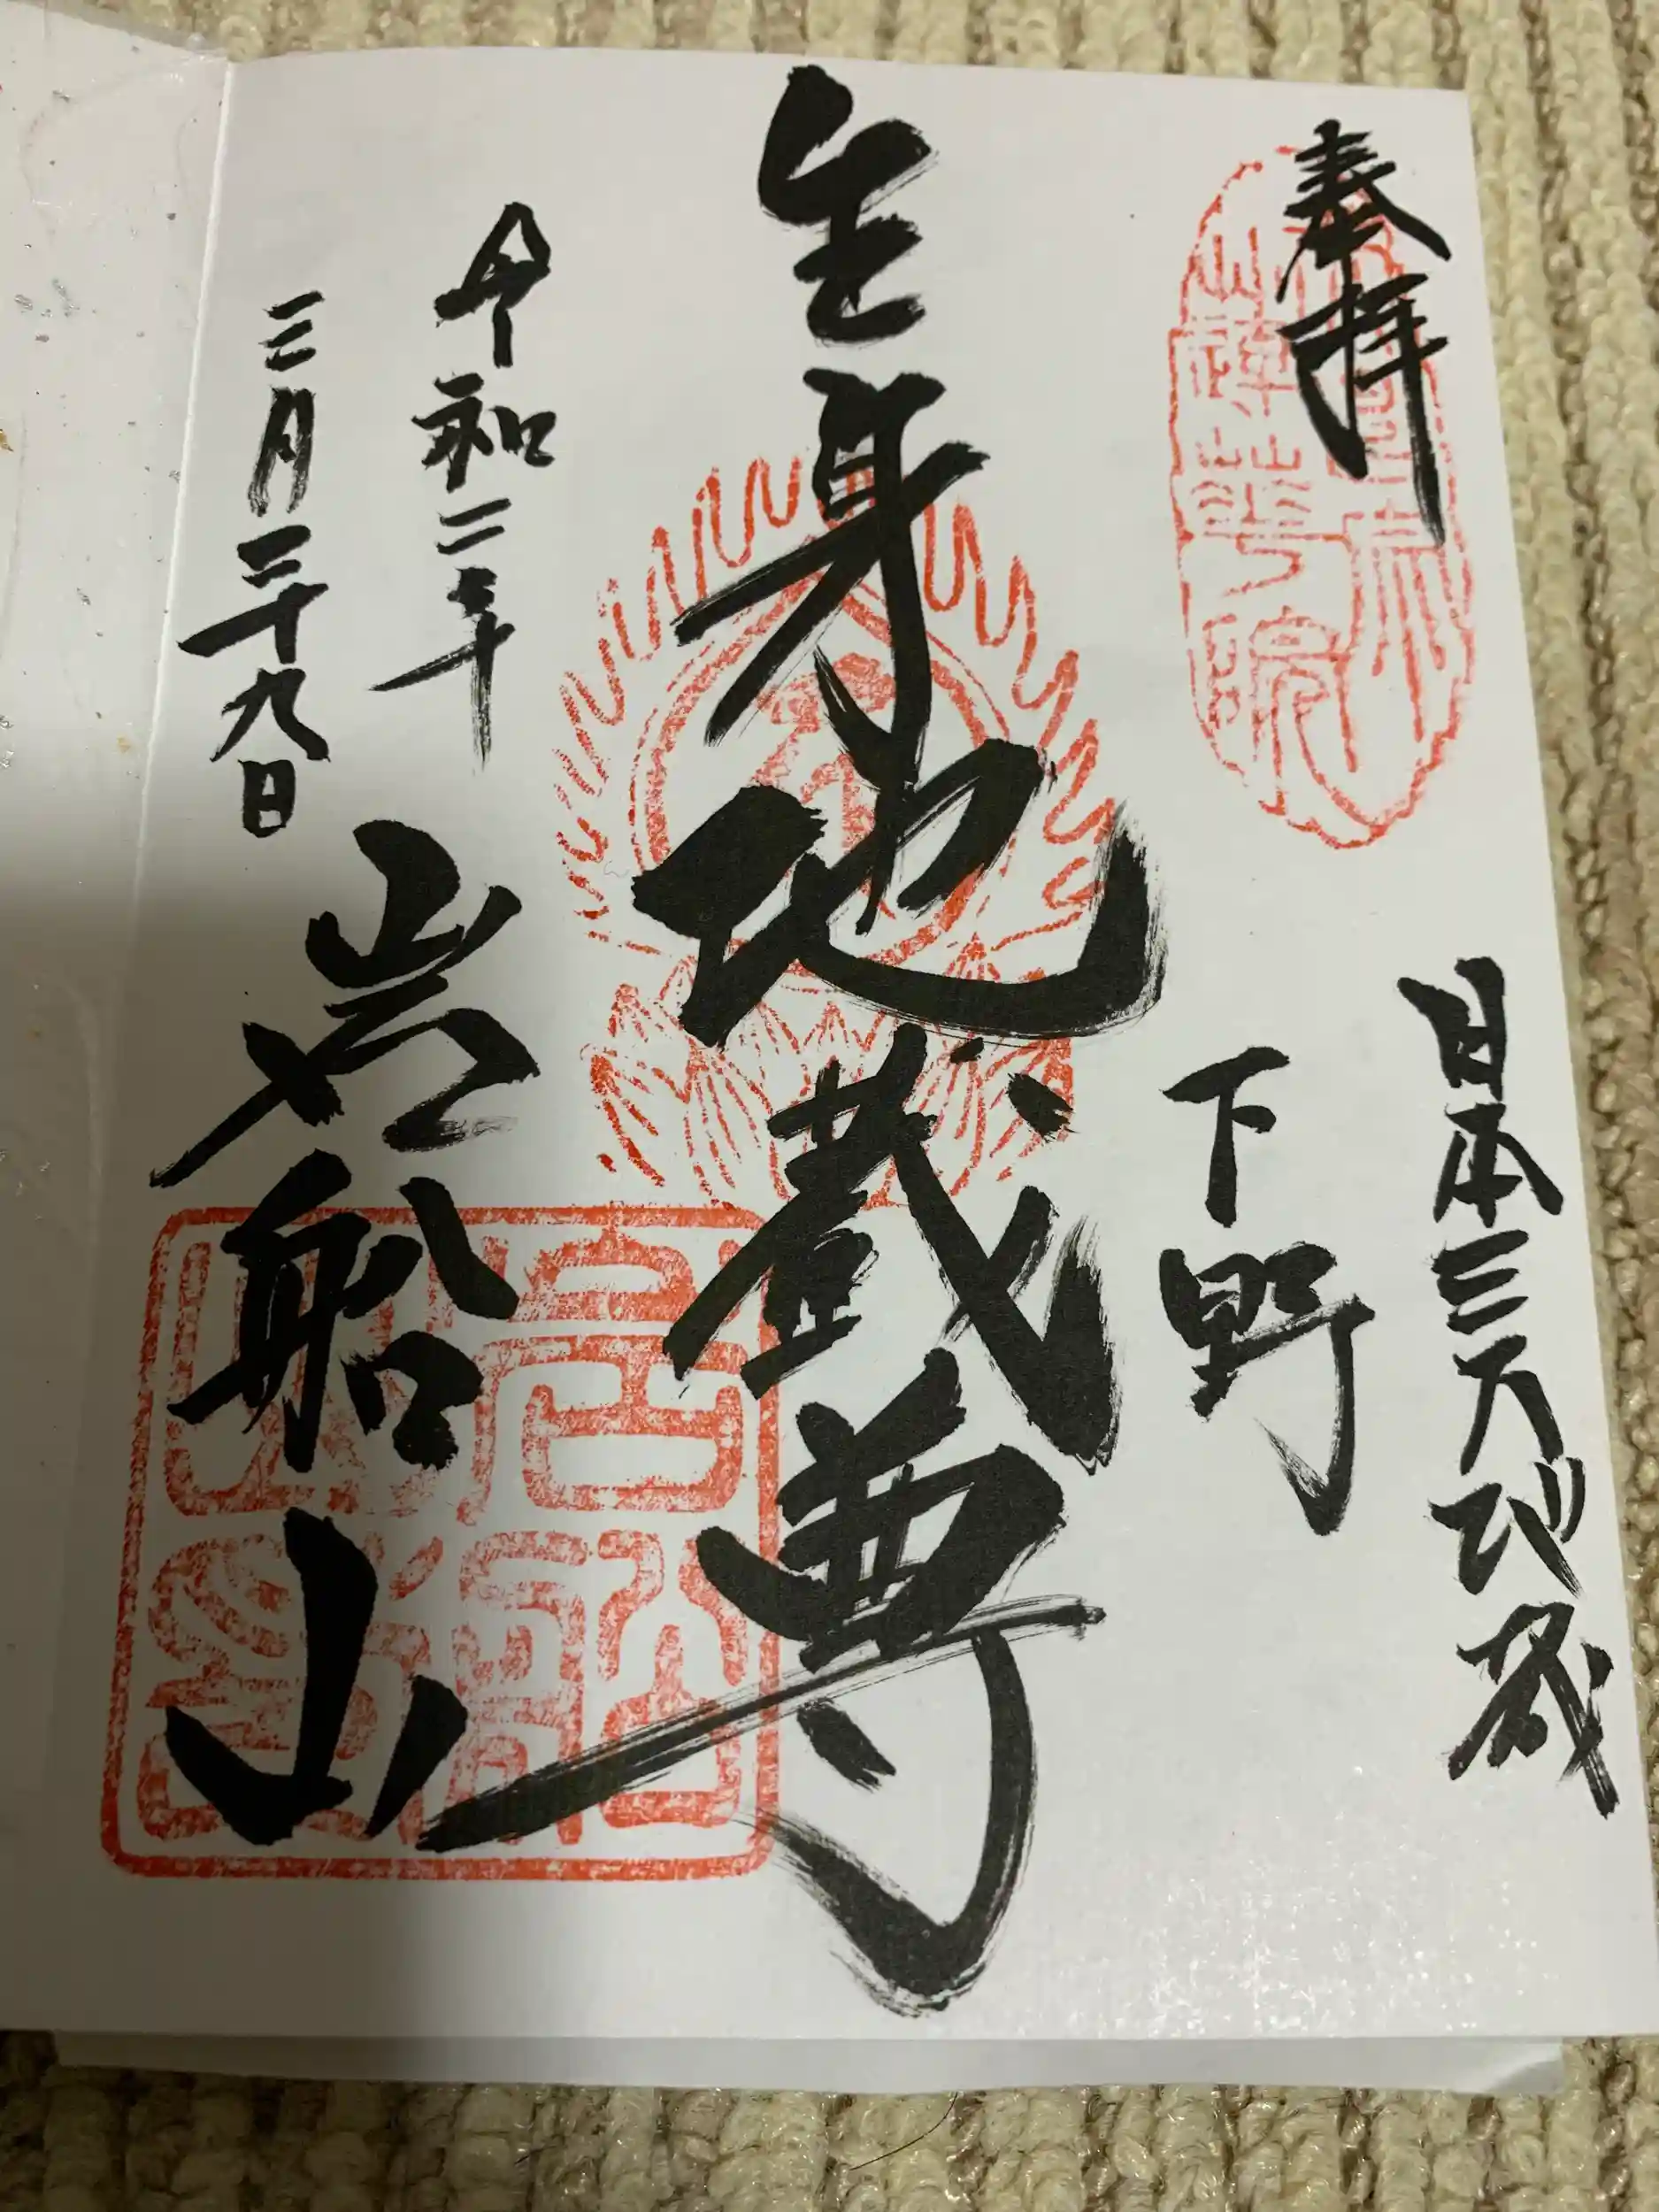 奉拝
日本三大地蔵
下野
生身地蔵尊
令和二年
三月二十九日
岩船山